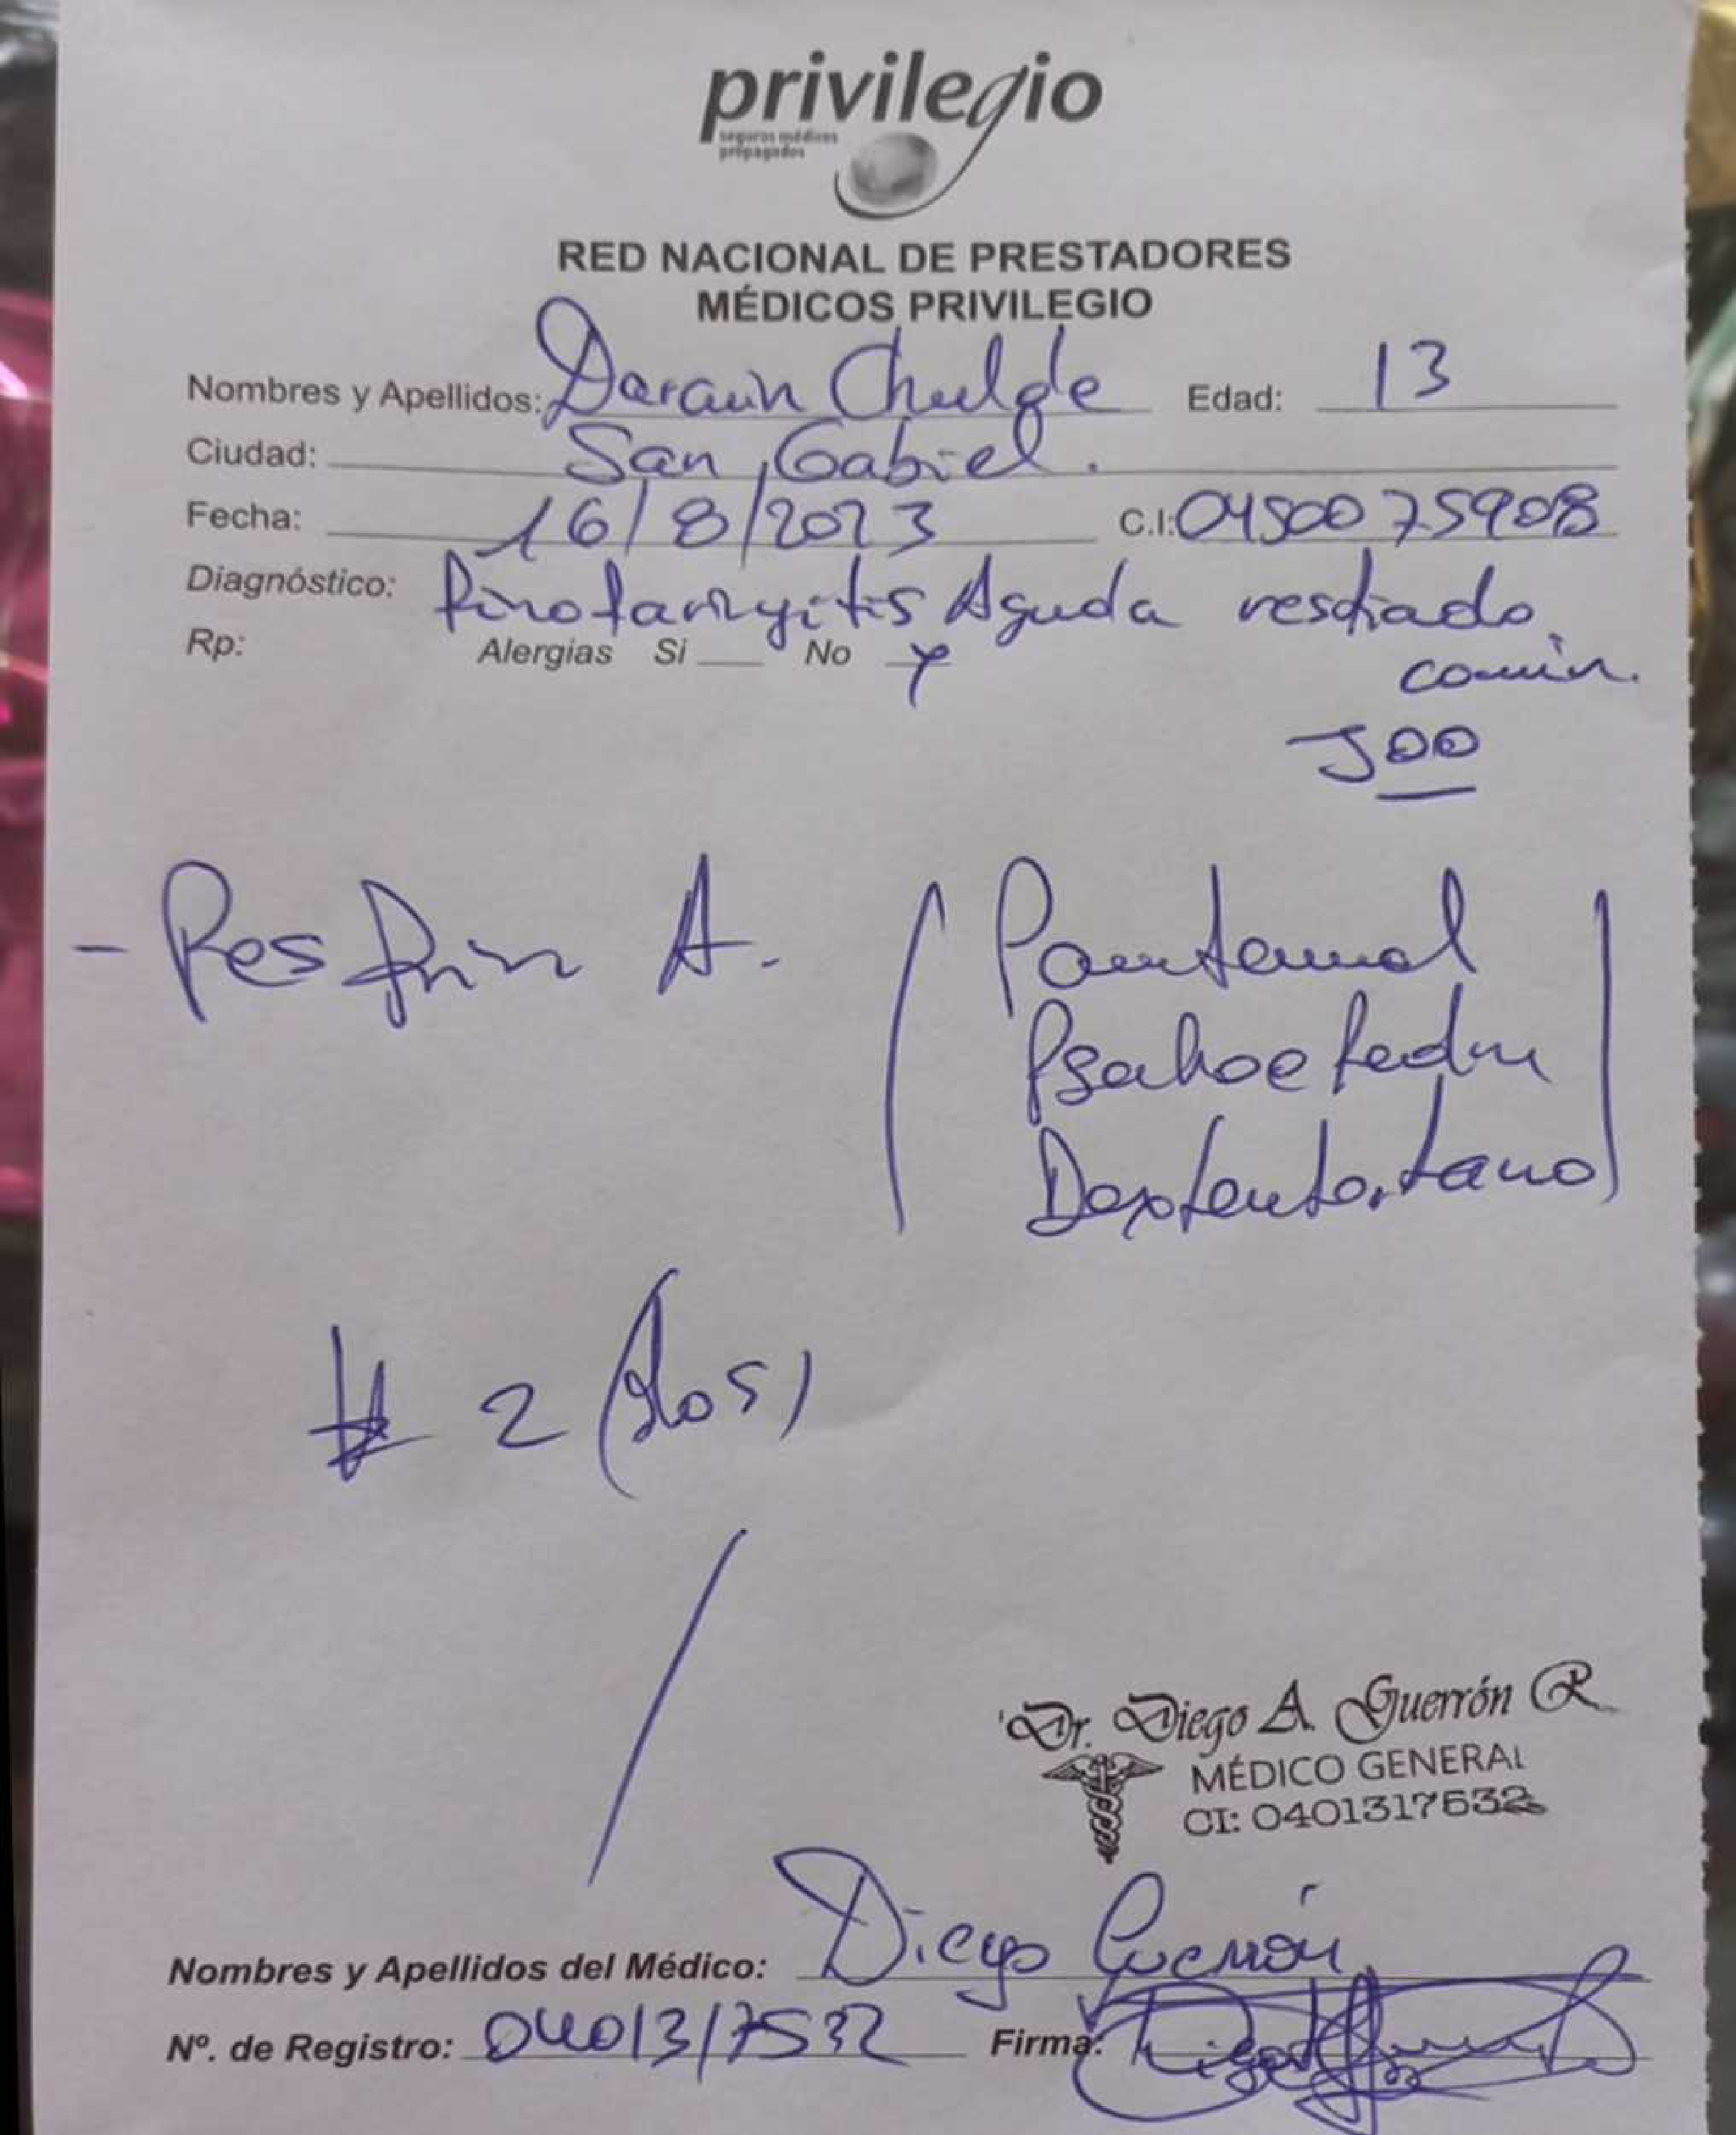 privilegio
seguros médicos
prepagados
RED NACIONAL DE PRESTADORES
MÉDICOS PRIVILEGIO
Nombres y Apellidos: Darwin Chulde Edad: 13
Ciudad: San Gabriel.
Fecha: 16/8/2023 C.I: 0450075908
Diagnóstico: Rinofaringitis Aguda resfriado
común.
Rp: Alergias Si No x
J00
- Resfrin A. (Paracetamol
Pseudoefedrina
#2 (dos)
Dr. Diego A. Guerrón R
MÉDICO GENERAL
CI: 0401317532
Nombres y Apellidos del Médico: Diego Guerrón
Nº. de Registro: 0401317532 Firma: